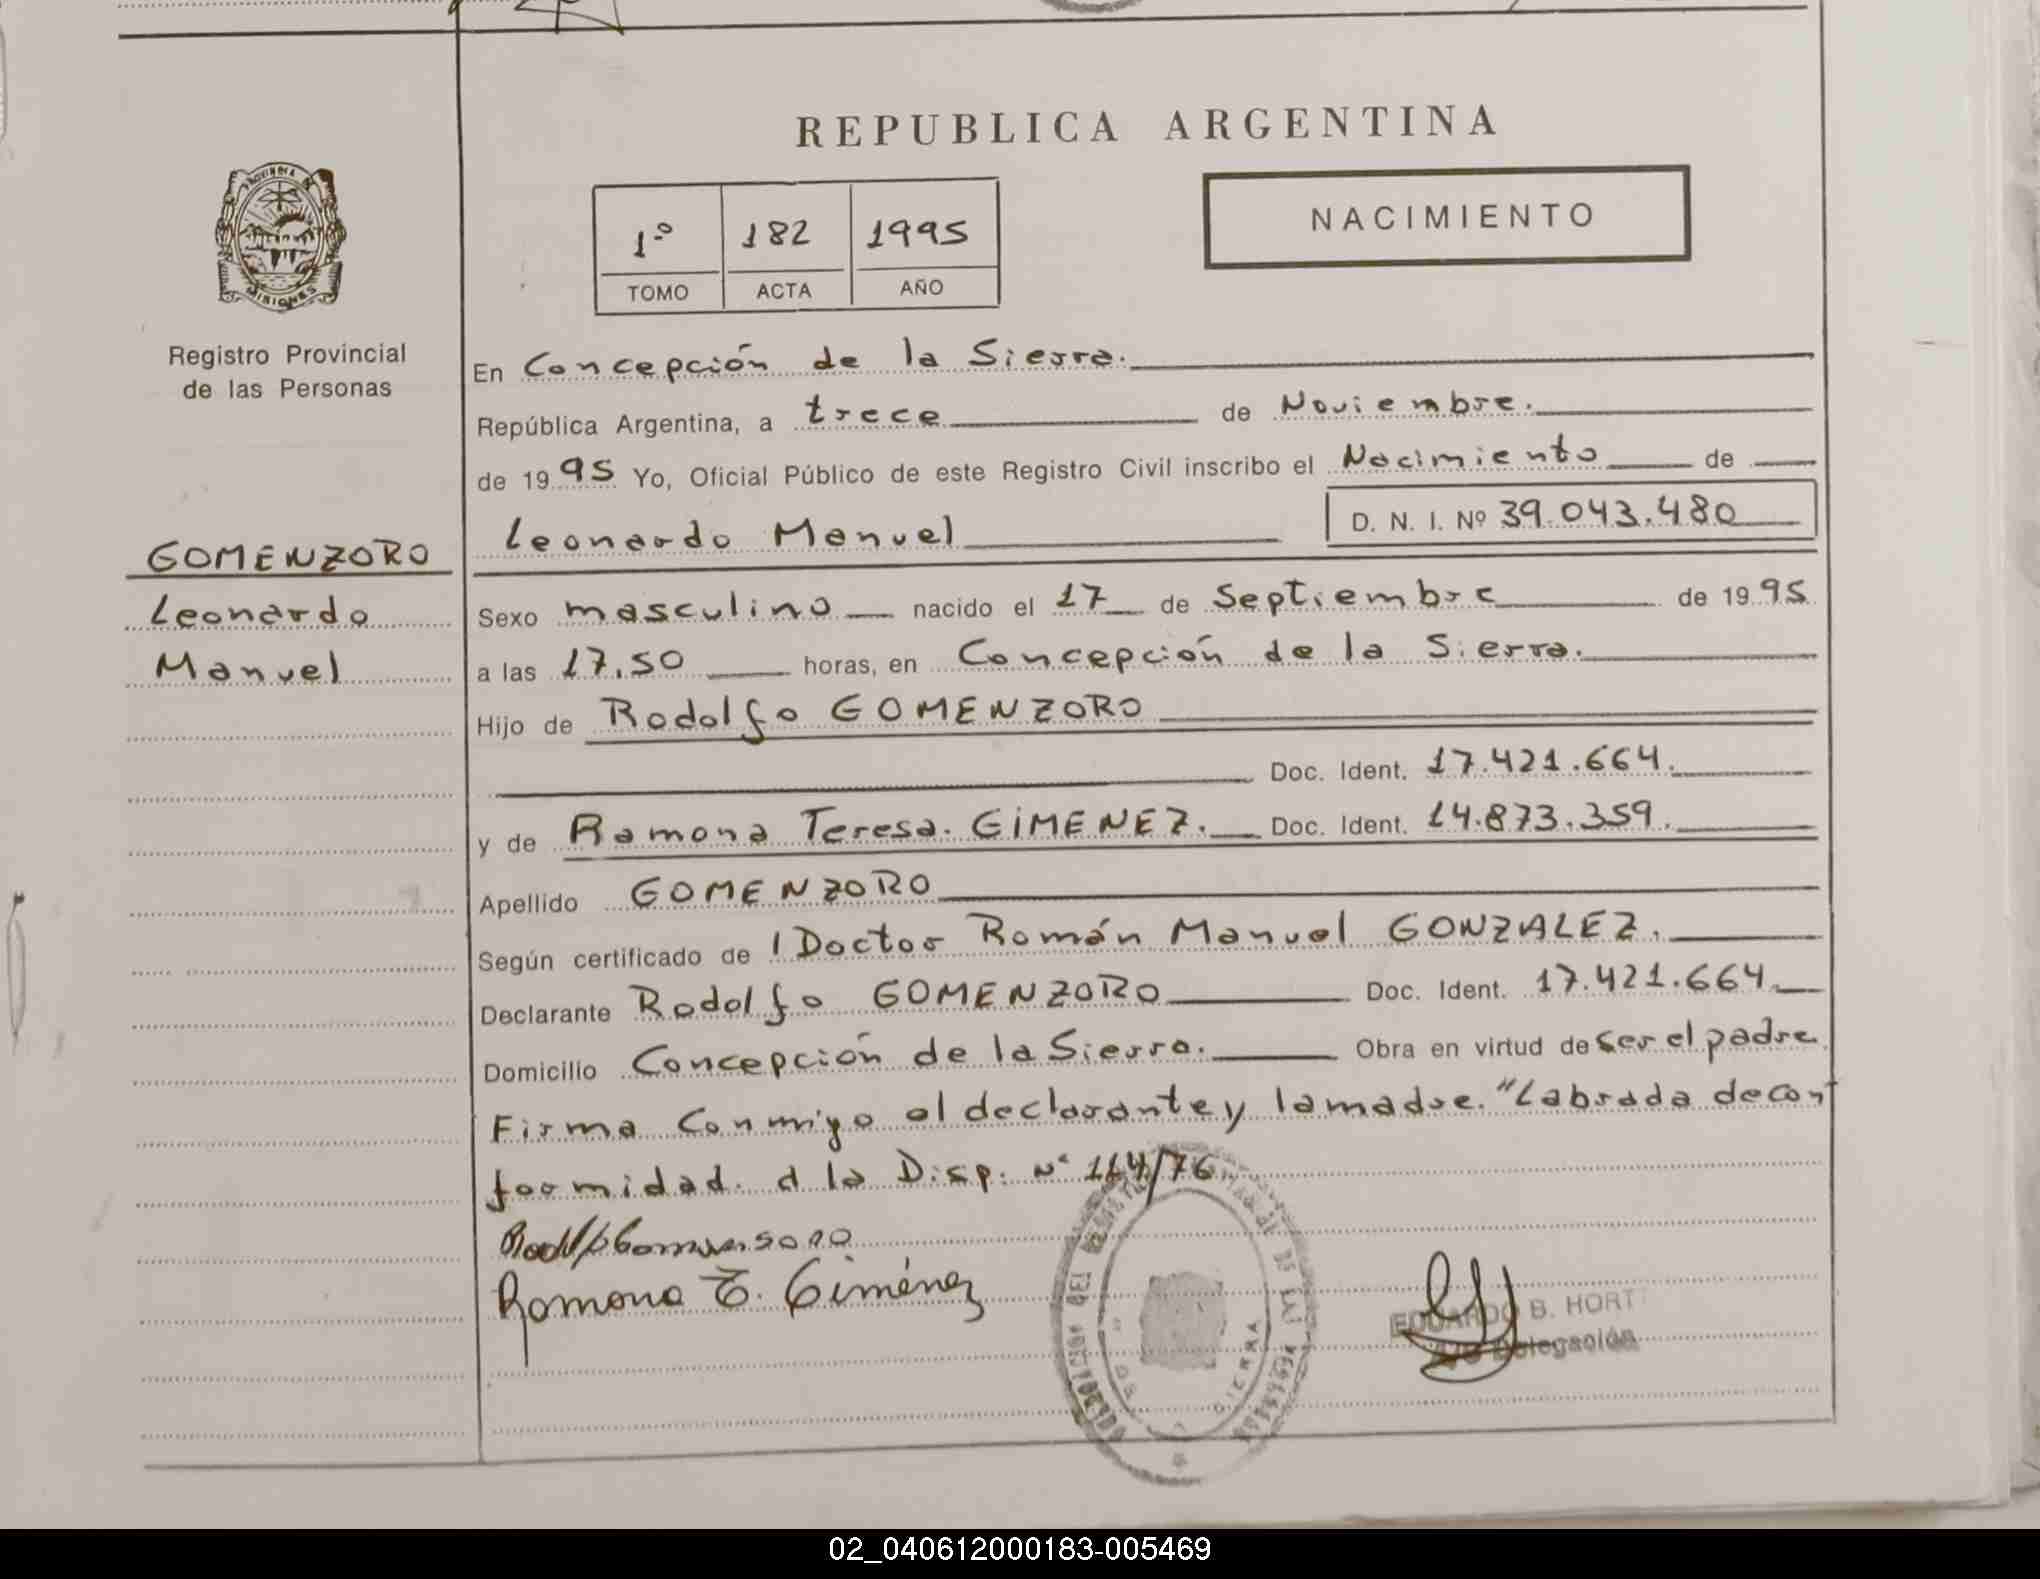 REPUBLICA ARGENTINA
PROVINCIA DE
MISIONES
Registro Provincial
de las Personas
1º 182 1995
TOMO ACTA AÑO
NACIMIENTO
En Concepción de la Sierra.
República Argentina, a trece de Noviembre.
de 1995 Yo, Oficial Público de este Registro Civil inscribo el Nacimiento de
Leonardo Manuel D. N. I. Nº 39.043.480
GOMENZORO
Leonardo
Manuel
Sexo masculino nacido el 17 de Septiembre de 1995
a las 17.50 horas, en Concepción de la Sierra.
Hijo de Rodolfo GOMENZORO
Doc. Ident. 17.421.664.
y de Ramona Teresa. GIMENEZ. Doc. Ident. 14.873.359.
Apellido GOMENZORO
Según certificado de l Doctor Román Manuel GONZALEZ.
Declarante Rodolfo GOMENZORO Doc. Ident. 17.421.664.
Domicilio Concepción de la Sierra. Obra en virtud de ser el padre
Firma Conmigo el declarante y la madre. "Labrada de con
formidad. a la Disp. Nº 114/76
Ramona T. Giménez
EDUARDO B. HORT
Delegación
SIERRA
02_040612000183-005469